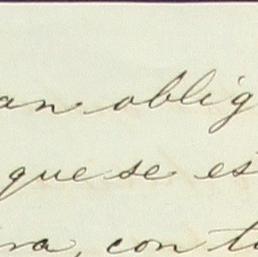 an oblig
que se es
ra, con t